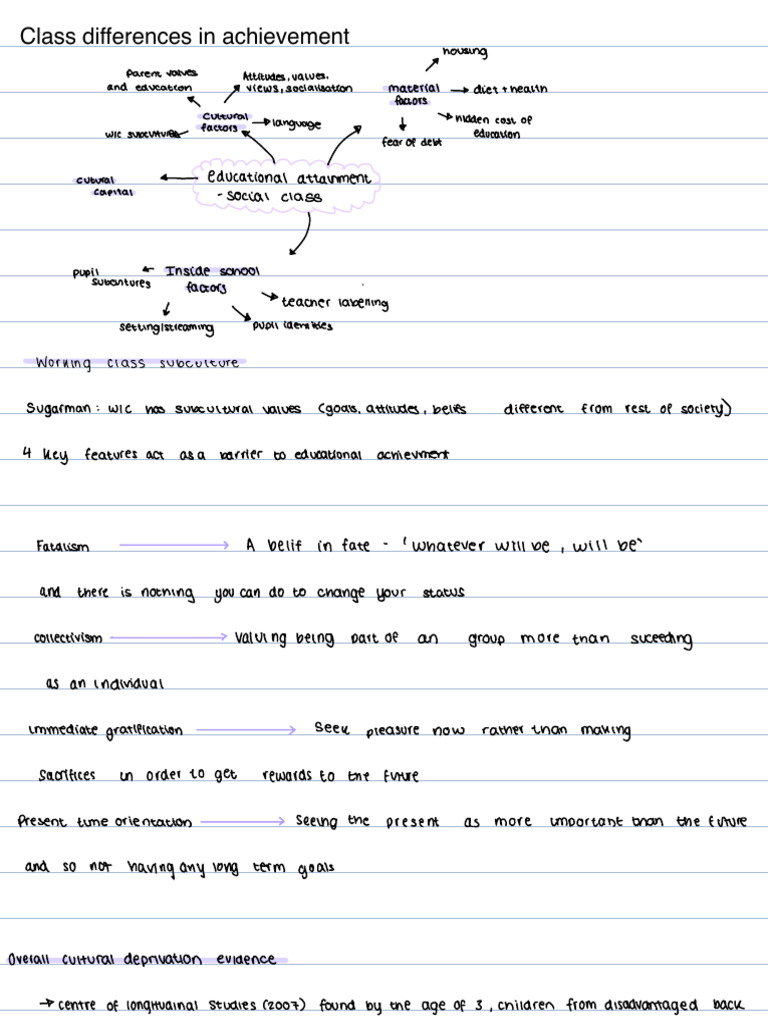 Class differences in achievement
housing
Parent values
and education
Attitudes, values,
views, socialisation
material
factors
diet + health
cultural
factors
language
hidden cost of
education
W/C subculture
fear of debt
educational attainment
- social class
cutural
capital
pupil
subcultures
Inside school
factors
teacher labelling
setting/streaming
pupil identities
Working class subculture
Sugarman: W/C has subcultural values (goals, attitudes, beliefs different from rest of society)
4 key features act as a barrier to educational achievment
Fatalism A belif in fate - 'whatever will be, will be'
and there is nothing you can do to change your status
collectivism valuing being part of an group more than suceeding
as an individual
immediate gratification seek pleasure now rather than making
sacrifices in order to get rewards to the future
Present time orientation seeing the present as more important than the future
and so not having any long term goals
Overall cultural deprivation evidence
→ centre of longitudinal studies (2007) found by the age of 3, children from disadvantaged back